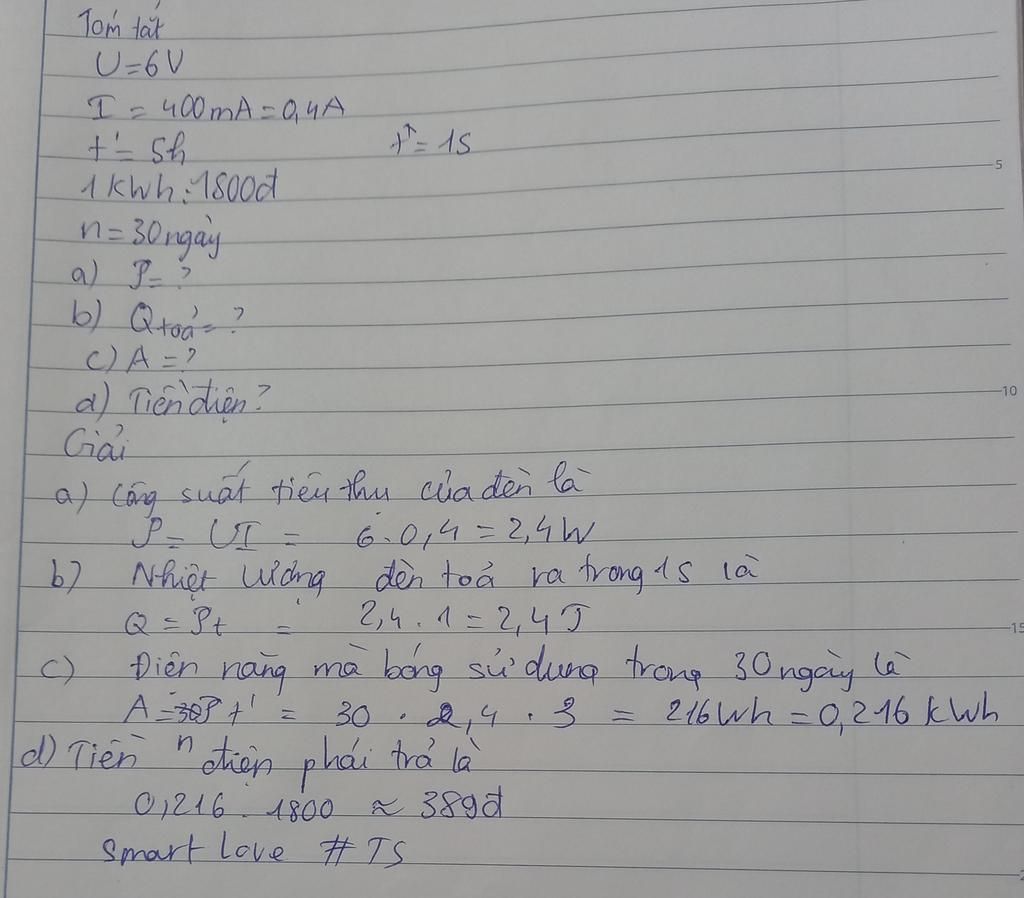 Tóm tắt
U = 6V
I = 400mA = 0,4A
t' = 5h t = 1s
1 kWh: 1800đ
n = 30 ngày
a) P = ?
b) Qtoả = ?
c) A = ?
d) Tiền điện?
Giải
a) Công suất tiêu thụ của đèn là
P = UI = 6.0,4 = 2,4W
b) Nhiệt lượng đèn toả ra trong 1s là
Q = Pt = 2,4 . 1 = 2,4 J
c) Điện năng mà bóng sử dụng trong 30 ngày là
A = nPt' = 30 . 2,4 . 3 = 216Wh = 0,216 kWh
d) Tiền điện phải trả là
0,216 . 1800 ≈ 389đ
Smart Love # TS
5
10
15